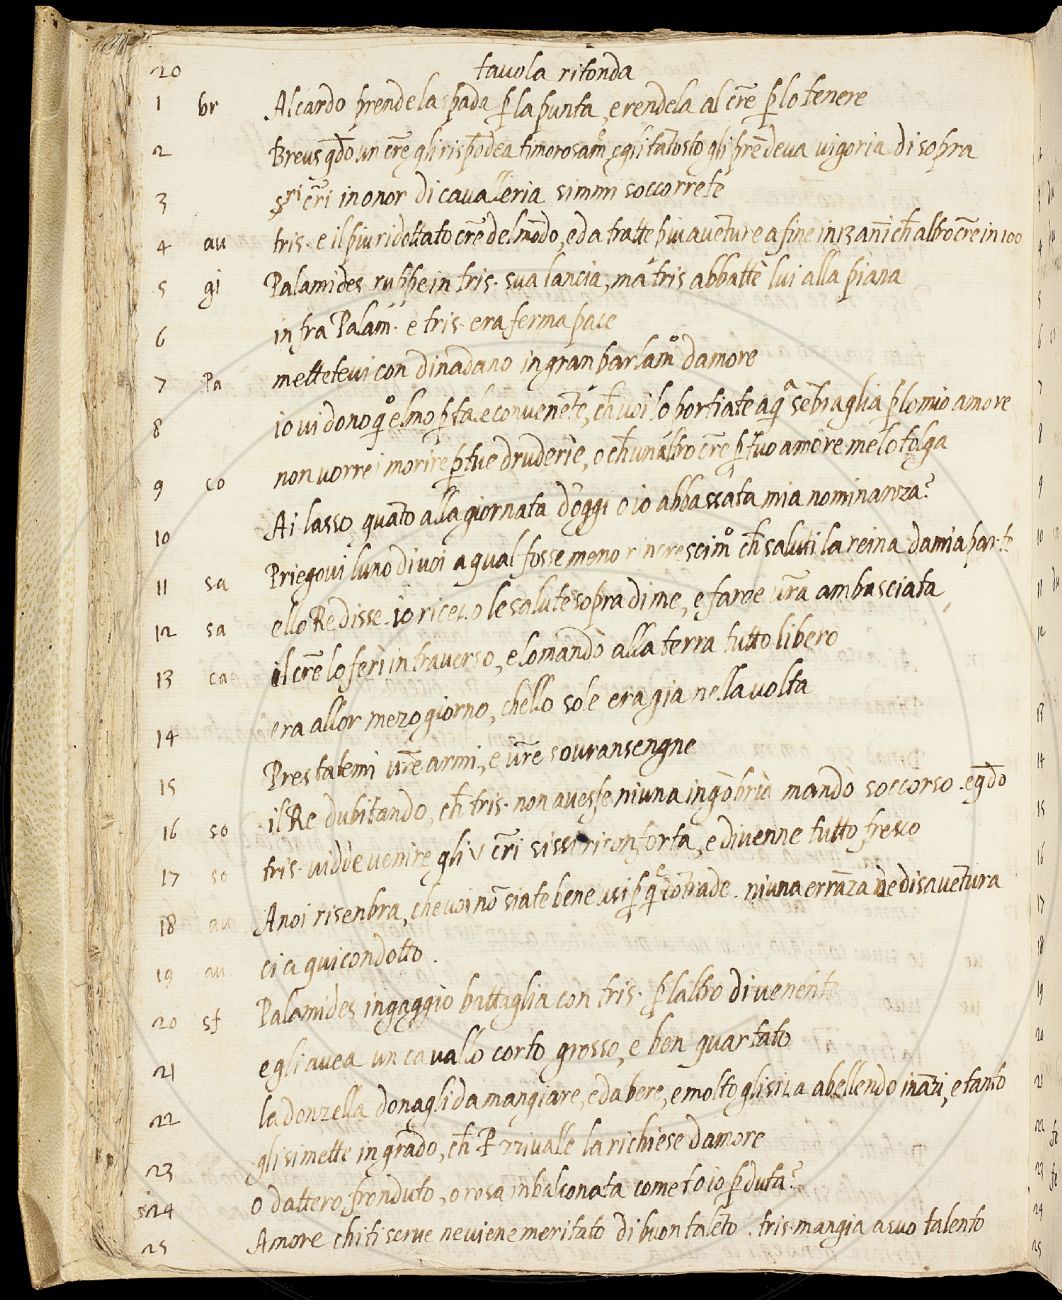 20 tavola ritonda
1 br Alcardo prende la spada p̱ la punta, e rendela al cr̃e p̱ lo tenere
2 Breus qd̃o un cr̃e gli rispõdea timorosam̊ egli tãtosto gli prẽdeva vigoria di sopra
3 sri cr̃i in onor di cavalleria simmi soccorrete
4 au tris. e il piu ridottato cr̃e del mõdo, ed a tratte piu avẽture a fine in 13 ani ch̃ altro cr̃e in 100
5 gi Palamides ruppe in tris. sua lancia, ma tris abbattè lui alla piana
6 infra Palam. e tris. era ferma pace
7 Pa mettetevi con dinadano in gran barlam̊ damore
8 io vi dono q̊ elmo p̱ tale convenẽte, ch̃ voi lo portiate a q̃ sẽbraglia p̱ lo mio amore
9 co non vorrei morire p̱ tue druderie, o ch̃ un altro cr̃e p̱ tuo amore me lo tolga
10 Ai lasso, quãto alla giornata d'oggi o io abbassata mia nominanza?
11 sa Priegovi luno di voi a qual fosse meno rincrescim̊ ch̃ saluti la reina da mia parte
12 sa ello Re disse. io ricevo le salute sopra di me, e faroe vr̃a ambasciata
13 ca il cr̃e lo ferì in traverso, e lo mandò alla terra tutto libero
14 era allor mezo giorno, chello sole era gia nella volta
15 Prestatemi vr̃e armi, e vr̃e sovransengne
16 so il Re dubitando, ch̃ tris. non avesse niuna ingõbria mandò soccorso. e qd̃o
17 so tris. vidde venire gli v cr̃i sissi riconforta, e divenne tutto fresco
18 au A noi risenbra, che voi nõ siate bene usi p̱ q̃ cõtrade. niuna errãza ne disavẽtura
19 au ci a qui condotto.
20 sf Palamides ingaggiò battaglia con tris. p̱ laltro di venente
21 egli avea un cavallo corto grosso, e ben quartato
22 la donzella donagli da mangiare, e da bere, e molto gli si va abellendo inãzi, e tanto
23 gli si mette in grãdo, ch̃ Przivalle la richiese damore
24 o dattero fronduto, o rosa inbalconata come to io p̱duta?
25 Amore chi ti serve ne viene meritato di buon talẽto. tris. mangia a suo talento